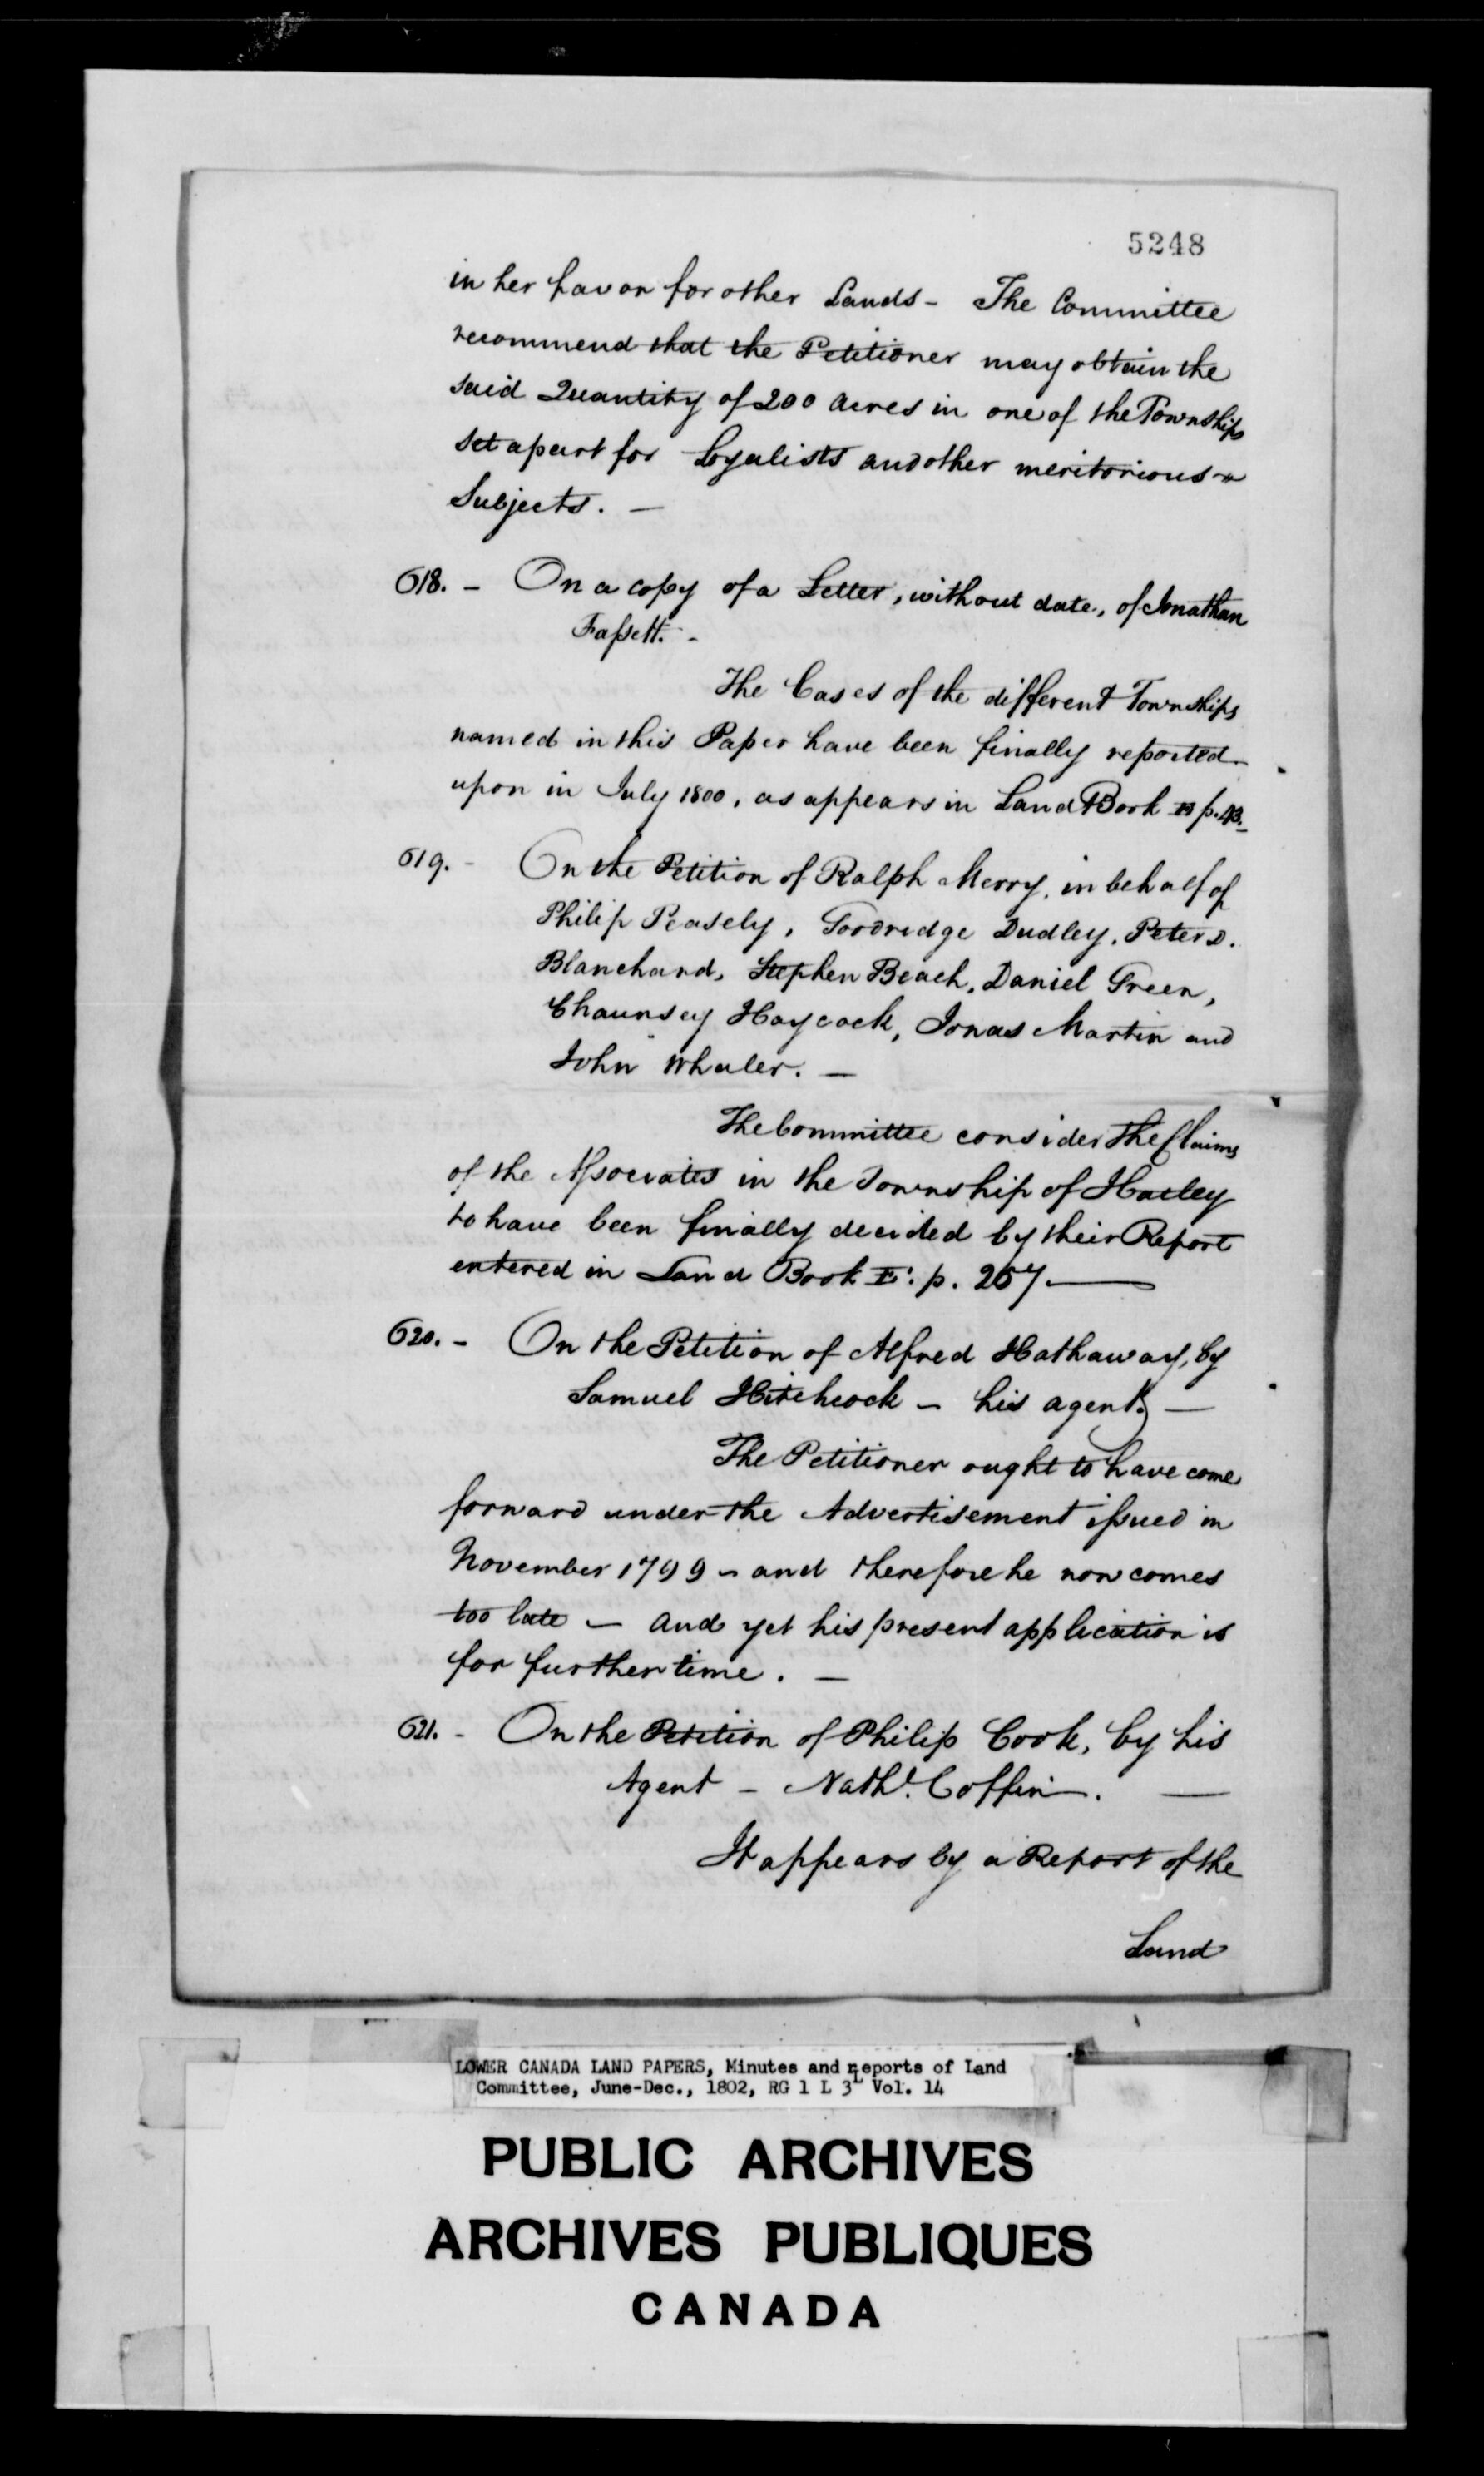 5248
in her favor for other Lands - The Committee
recommend that the Petitioner may obtain the
said Quantity of 200 Acres in one of the Townships
set apart for Loyalists and other meritorious
Subjects. -
618. - On a copy of a Letter, without date, of Jonathan
Faſsett. -
The Cases of the different Townships
named in this Paper have been finally reported
upon in July 1800, as appears in Land Book p. 43.
619. - On the Petition of Ralph Merry, in behalf of
Philip Peasely, Goodridge Dudley, Peter D.
Blanchard, Stephen Beach, Daniel Green,
Chaunsey Haycock, Jonas Martin and
John Whaler. -
The Committee consider the Claims
of the Aſsociates in the Township of Hatley
to have been finally decided by their Report
entered in Land Book E: p. 257
620. - On the Petition of Alfred Hathaway, by
Samuel Hitchcock - his agent. -
The Petitioner ought to have come
forward under the Advertisement iſsued in
November 1799 - and therefore he now comes
too late - and yet his present application is
for further time. -
621. - On the Petition of Philip Cook, by his
Agent - Nathl. Coffin. -
It appears by a Report of the
Land
LOWER CANADA LAND PAPERS, Minutes and Reports of Land
Committee, June-Dec., 1802, RG 1 L 3L Vol. 14
PUBLIC ARCHIVES
ARCHIVES PUBLIQUES
CANADA